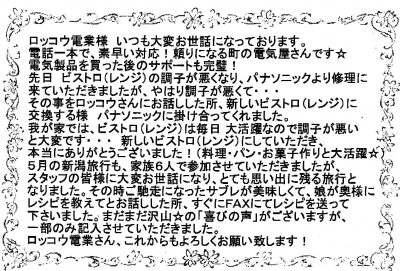 ロッコウ電業様 いつも大変お世話になっております。
電話一本で、素早い対応！頼りになる町の電気屋さんです☆
電気製品を買った後のサポートも完璧！
先日 ビストロ（レンジ）の調子が悪くなり、パナソニックより修理に
来ていただきましたが、やはり調子が悪くて・・・
その事をロッコウさんにお話しした所、新しいビストロ（レンジ）に
交換する様 パナソニックに掛け合ってくれました。
我が家では、ビストロ（レンジ）は毎日 大活躍なので調子が悪い
と大変です・・・ 新しいビストロ（レンジ）にしていただき、
本当にありがとうございました！（料理・パン・お菓子作りと大活躍☆）
5月の新潟旅行も、家族6人で参加させていただきましたが、
スタッフの皆様に大変お世話になり、とても思い出に残る旅行と
なりました。その時ご馳走になったサブレが美味しくて、娘が奥様に
レシピを教えてとお話しした所、すぐにFAXにてレシピを送って
下さいました。まだまだ沢山☆の「喜びの声」がございますが、
一部のみ記入させていただきました。
ロッコウ電業さん、これからもよろしくお願い致します！